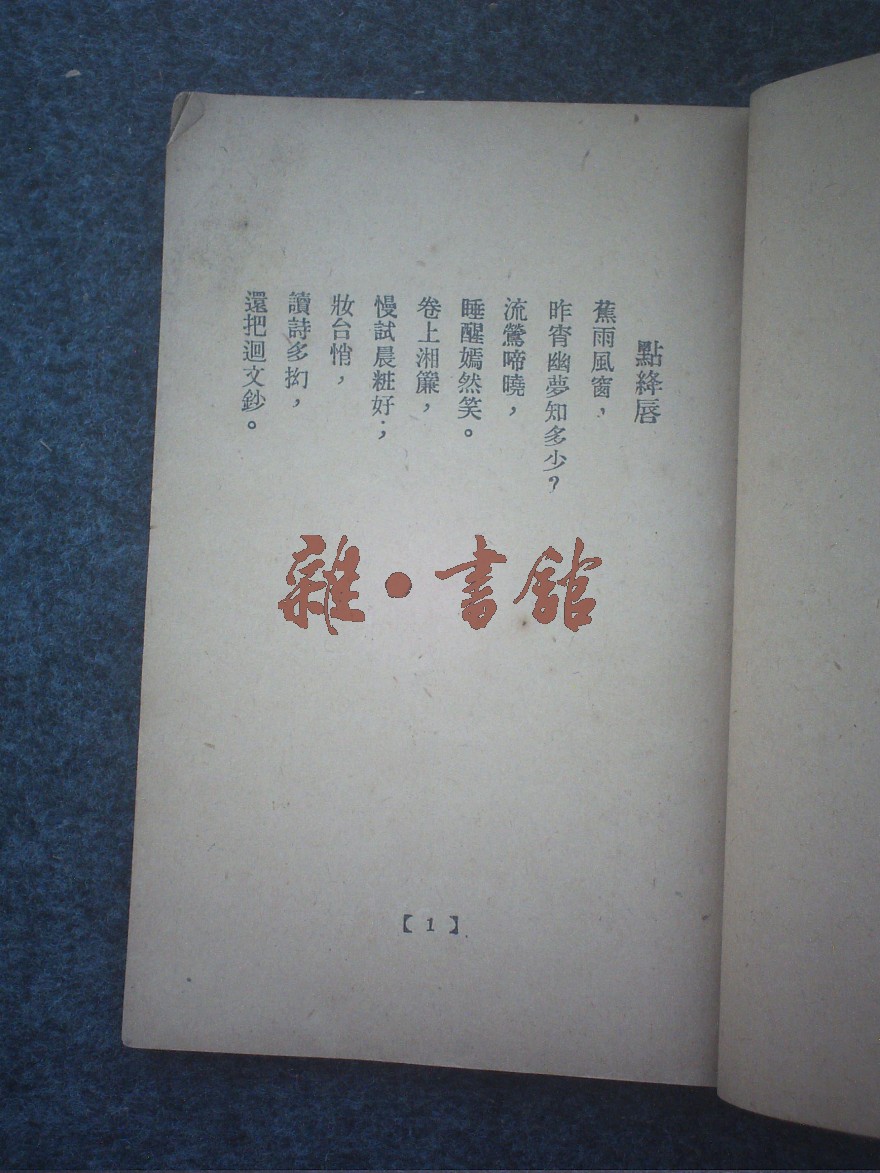 點絳唇
蕉雨風窗，
昨宵幽夢知多少？
流鶯啼曉，
睡醒嫣然笑。
卷上湘簾，
慢試晨粧好；
妝台悄，
讀詩多拗，
還把迴文鈔。
雜·書舘
【1】